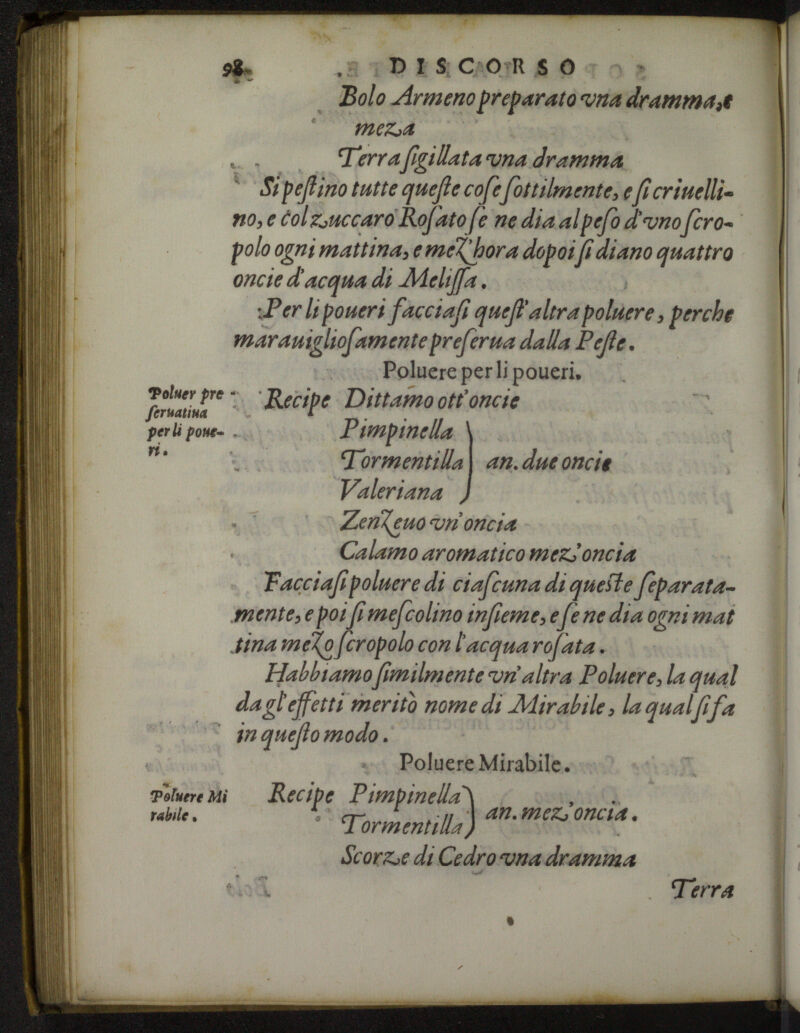 98
DISCORSO
Bolo Armeno preparato vna dramma, e
meza
Terra sigillata vna dramma
Si pestino tutte queste cose sottilmente, e si criuelli-
no, e col zuccaro Rosato se ne dia al peso d'vno scro-
polo ogni mattina, e mez'hora dopoi si diano quattro
oncie d'acqua di Melissa.
Per li poueri facciasi quest'altra poluere, perche
marauigliosamente preserua dalla Peste.
Poluere per li poueri.
Poluer pre
seruatiua
per li poue-
ri.
Recipe Dittamo ott'oncie
Pimpinella
Tormentilla } an. due oncie
Valeriana
Zenzeuo vn'oncia
Calamo aromatico mez'oncia
Facciasi poluere di ciascuna di queste separata-
mente, e poi si mescolino insieme, e se ne dia ogni mat
tina mezo scropolo con l'acqua rosata.
Habbiamo similmente vn'altra Poluere, la qual
da gl'effetti meritò nome di Mirabile, la qual si fa
in questo modo.
Poluere Mirabile.
Poluere Mi
rabile.
Recipe Pimpinella
Tormentilla } an. mez'oncia.
Scorze di Cedro vna dramma
Terra